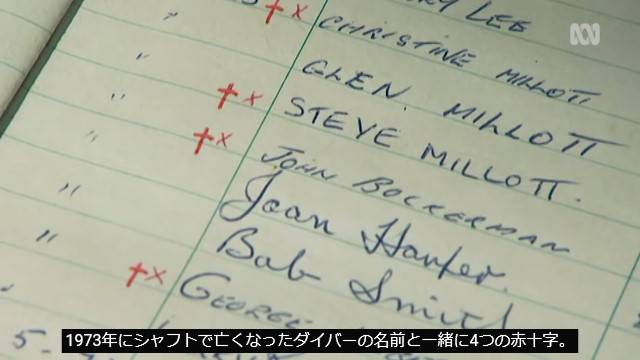 LEE
CHRISTINE MILLOTT
" GLEN. MILLOTT
" †x STEVE MILLOTT.
" †x JOHN BOCKERMAN
" Joan Harper.
" Bob Smith
†x GEORGE
5-
1973年にシャフトで亡くなったダイバーの名前と一緒に4つの赤十字。